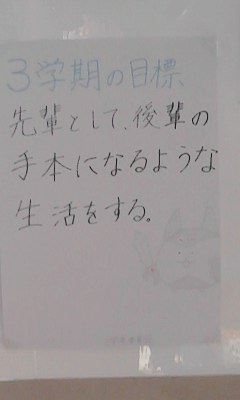 3学期の目標
先輩として、後輩の
手本になるような
生活をする。